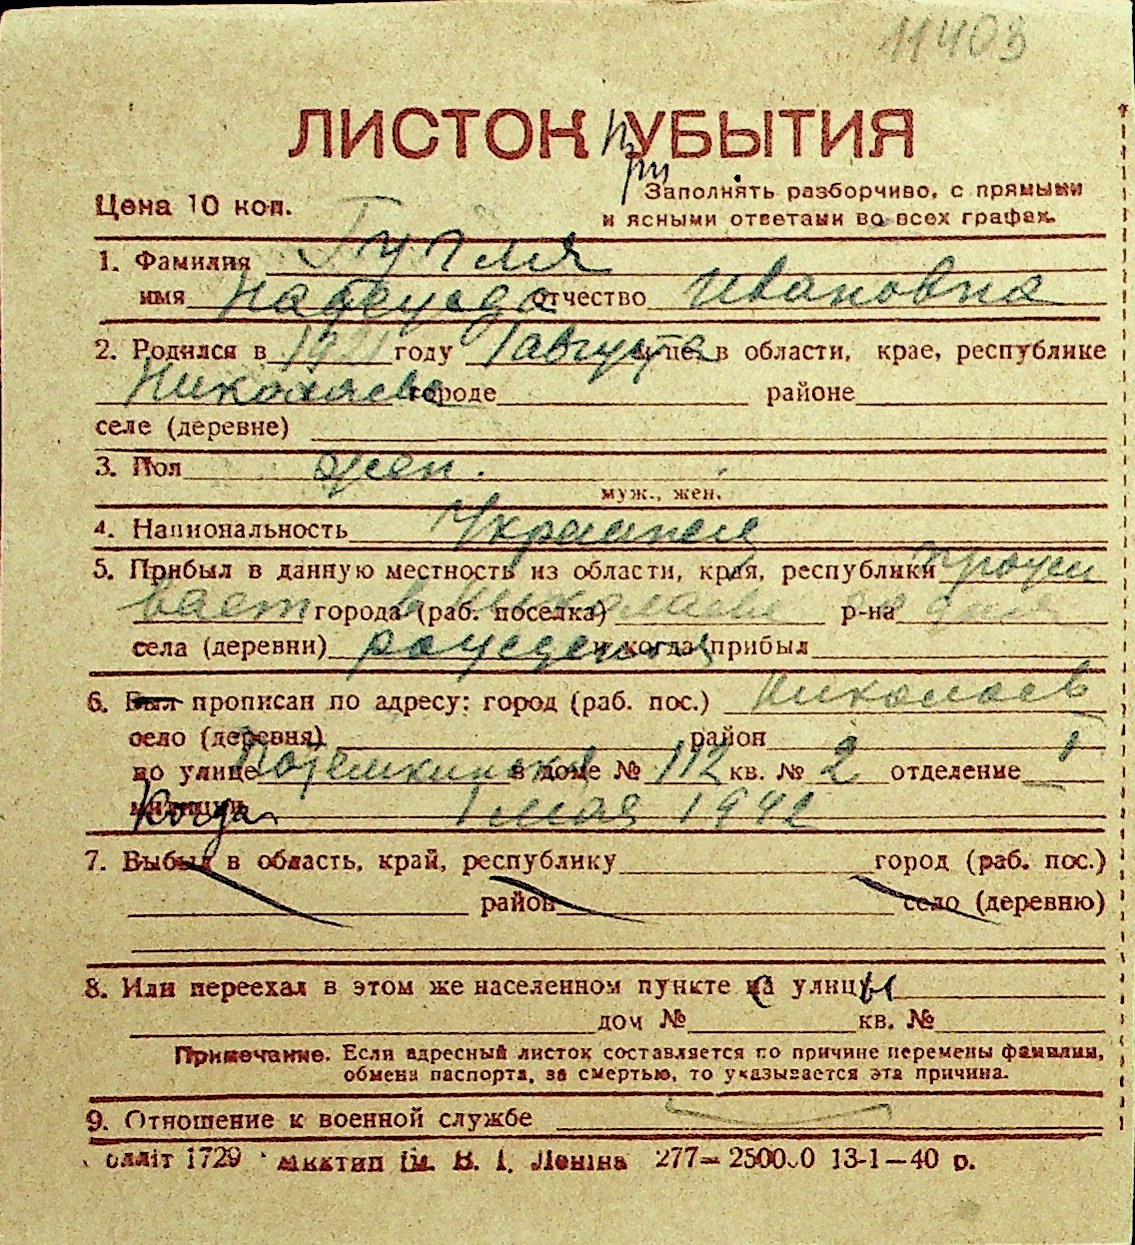 11403
ЛИСТОК при УБЫТИЯ
Цена 10 коп.
Заполнять разборчиво, с прямыми
и ясными ответами во всех графах.
1. Фамилия Гупля
имя Надежда отчество Ивановна
2. Родился в 1921 году 1 августа в области, крае, республике
Николаев городе районе
селе (деревне)
3. Пол жен.
муж., жен.
4. Национальность Украинка
5. Прибыл в данную местность из области, края, республики прожи
вает города (раб. поселка) в Николаеве р-на со дня
села (деревни) рождения и когда прибыл
6. Был прописан по адресу: город (раб. пос.) Николаев
село (деревня) район
по улице Потемкинская в доме № 112 кв. № 2 отделение I
милиции Когда 1 мая 1942
7. Выбыл в область, край, республику город (раб. пос.)
район село (деревню)
8. Или переехал в этом же населенном пункте с улицы
дом № кв. №
Примечание. Если адресный листок составляется по причине перемены фамилии,
обмена паспорта, за смертью, то указывается эта причина.
9. Отношение к военной службе
олліт 1729 ім. В. І. Леніна 277—2500.0 13-1—40 р.